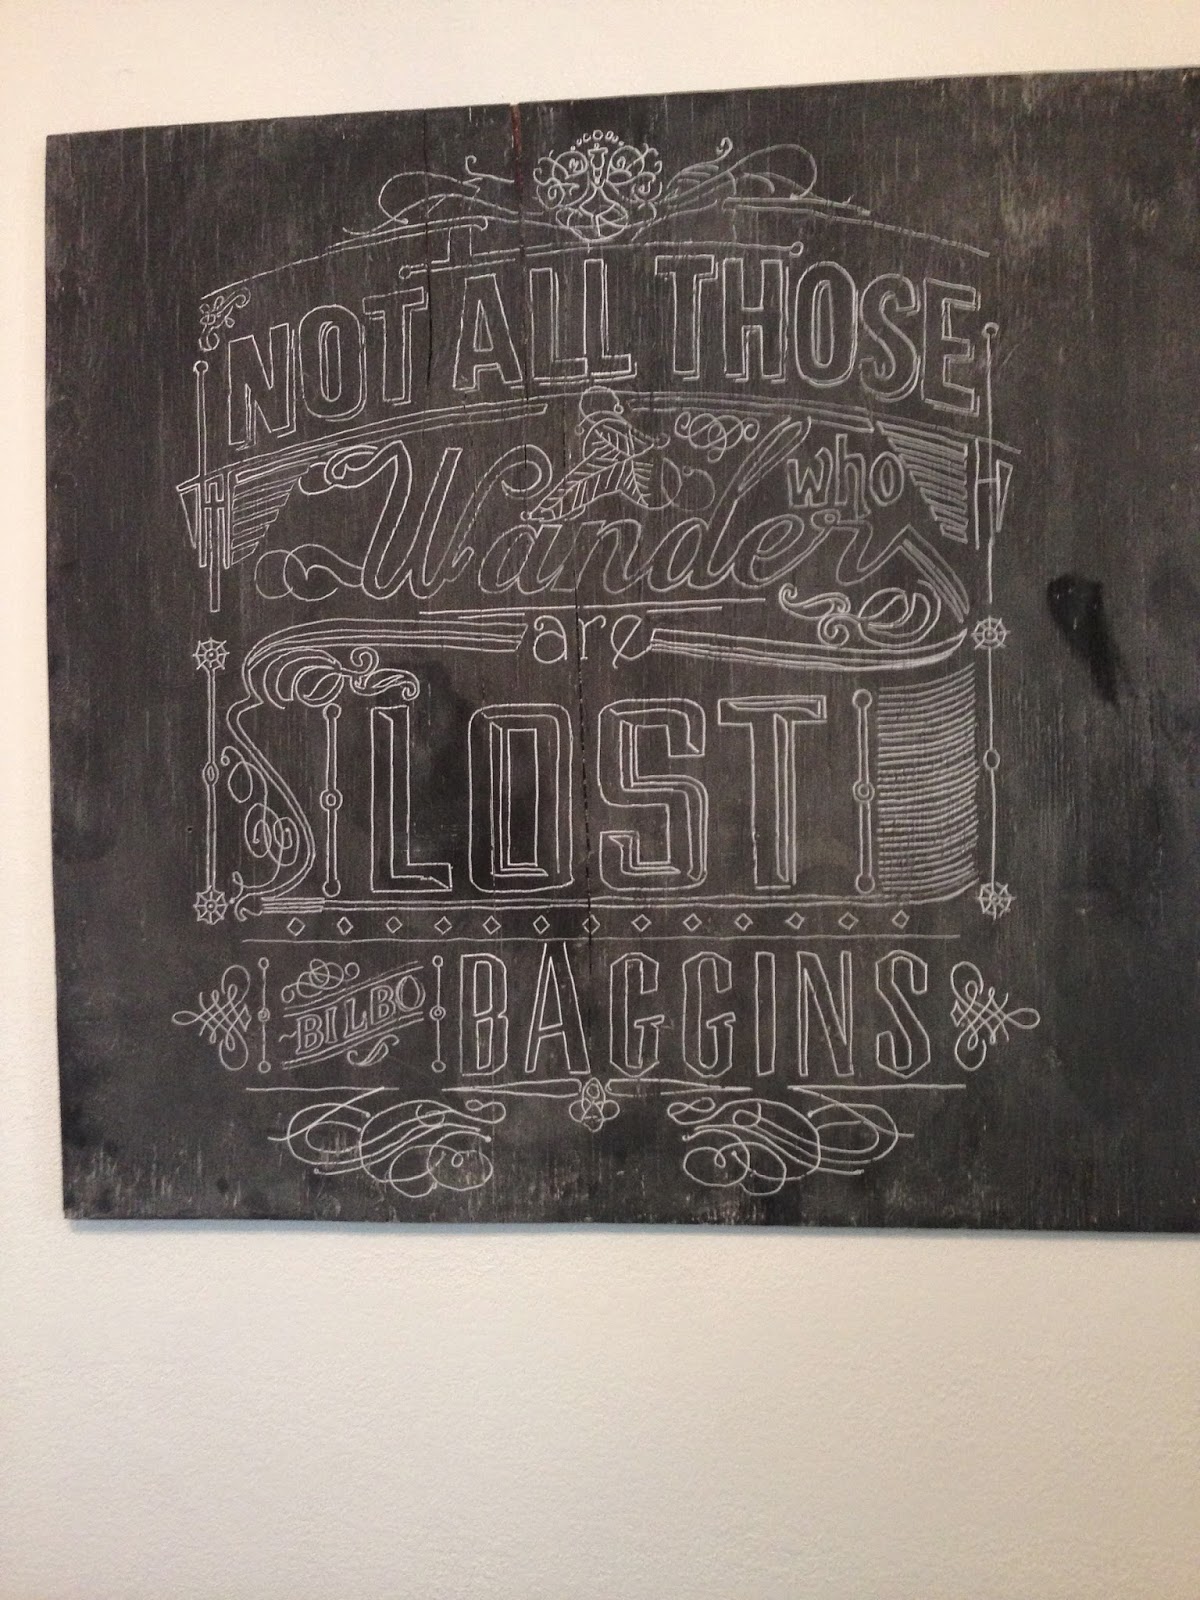 NOT ALL THOSE
who
Wander
are
LOST
BILBO BAGGINS